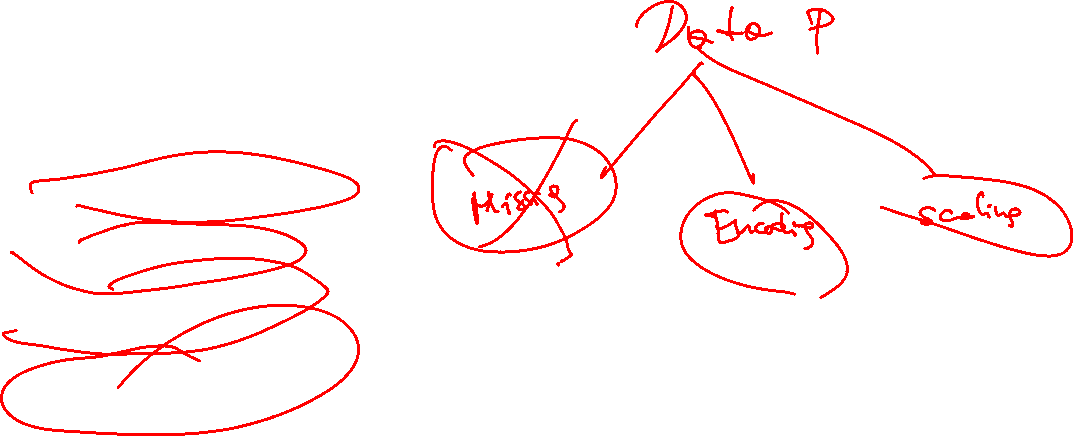 Data P
Missing
Encoding
scaling